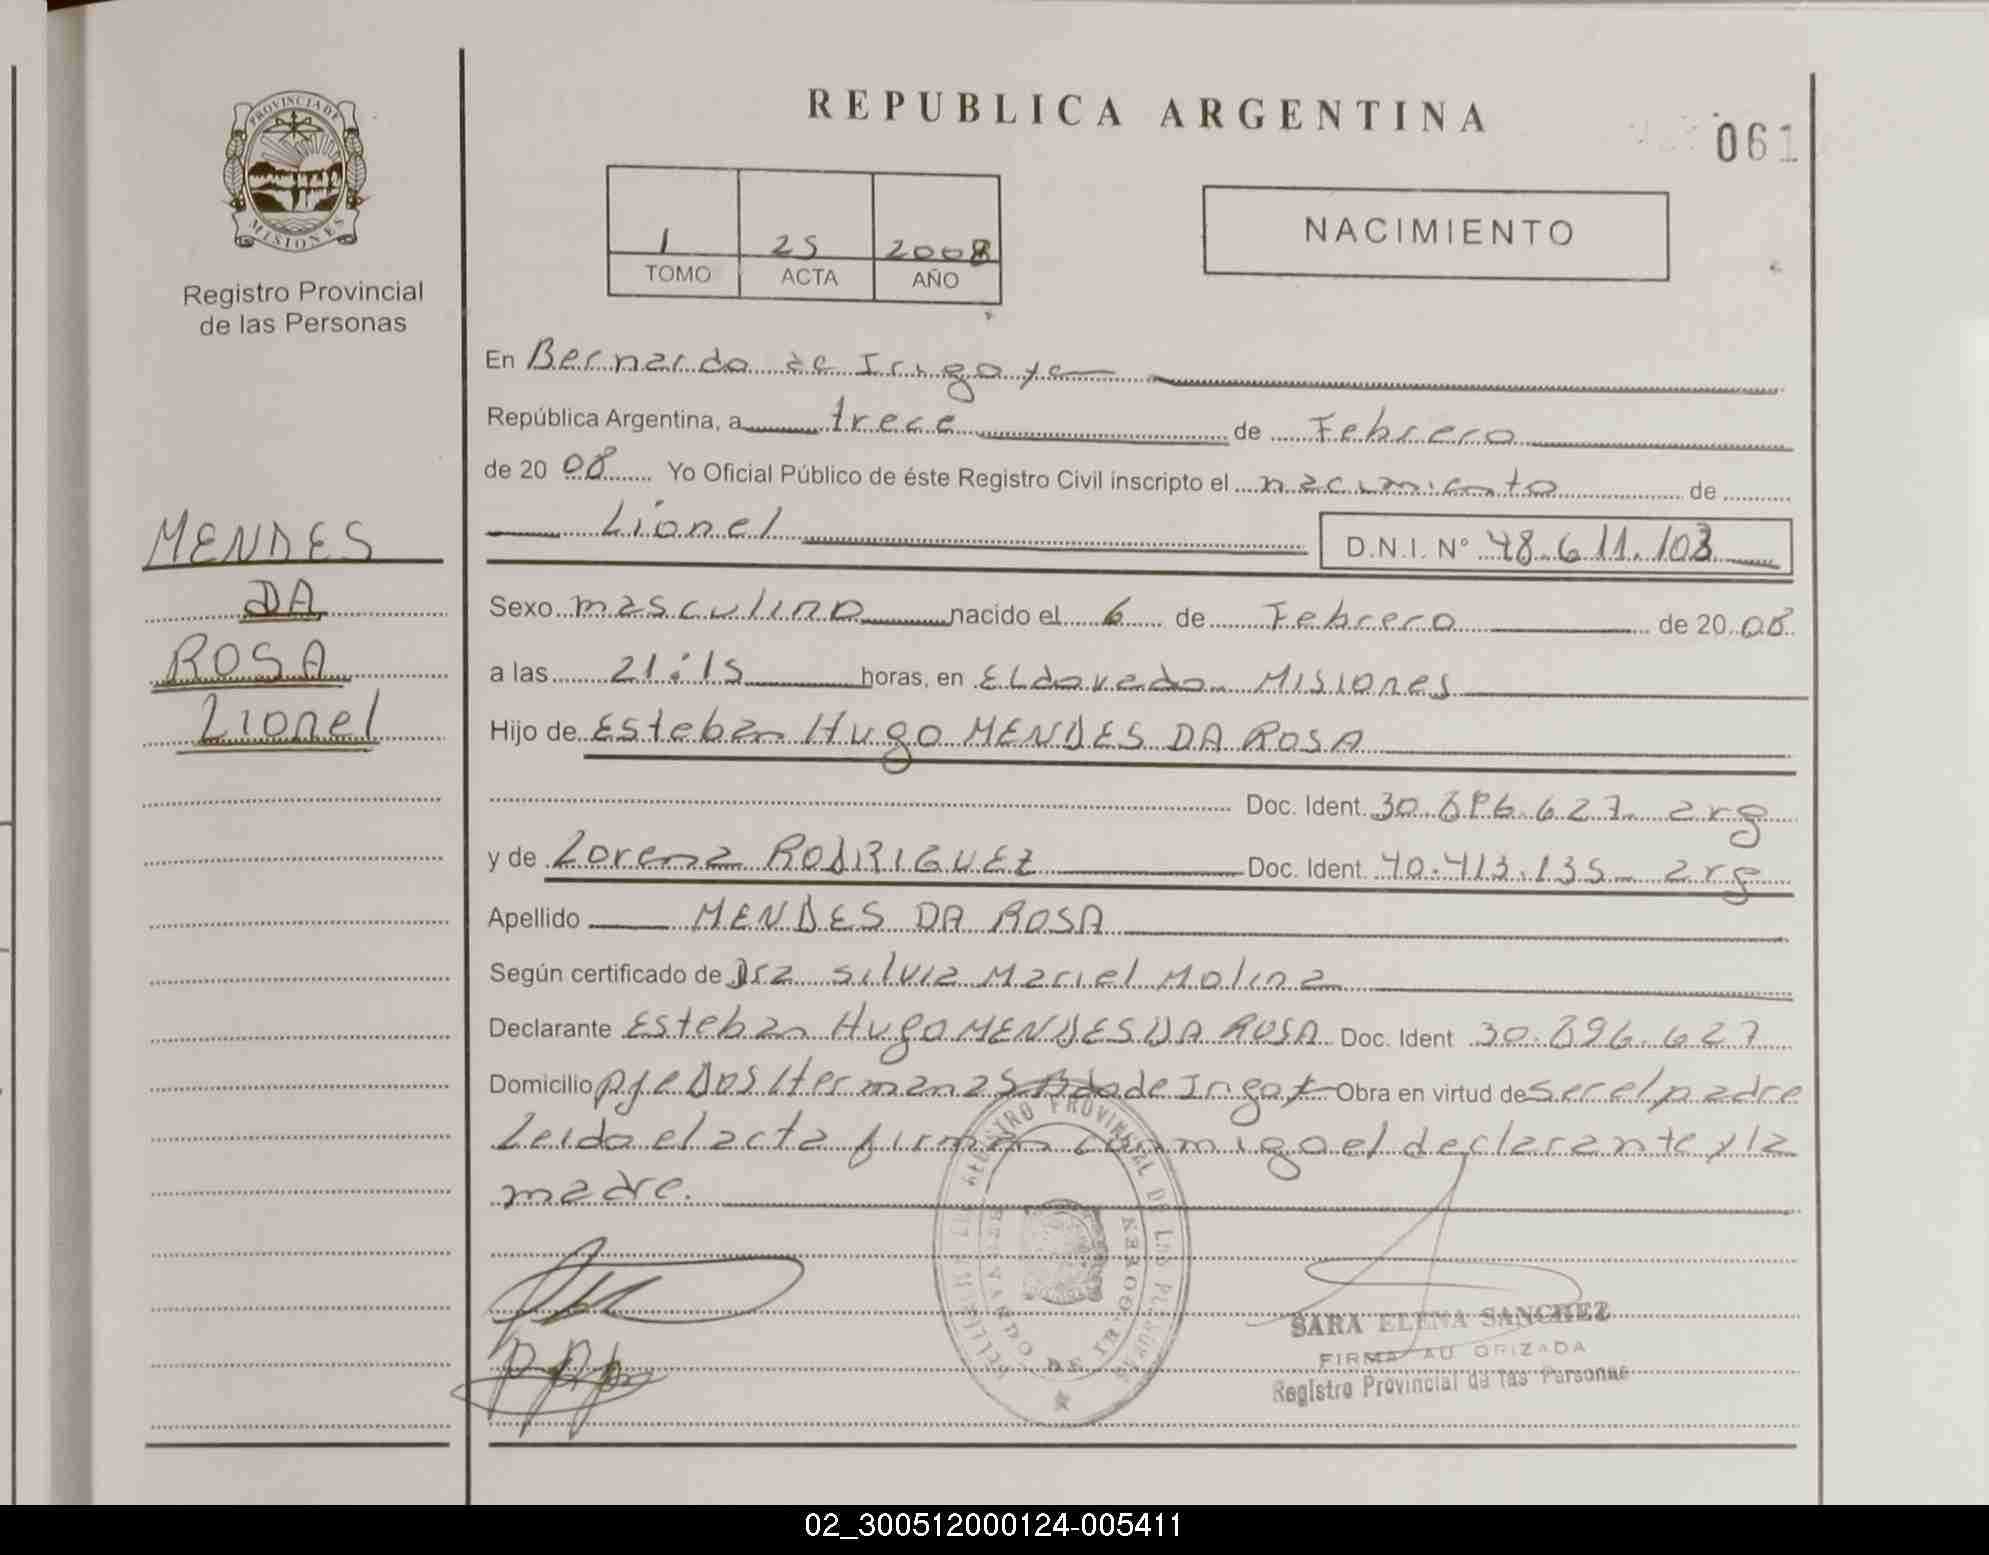 REPUBLICA ARGENTINA
061
PROVINCIA DE
MISIONES
Registro Provincial
de las Personas
1 25 2008
TOMO ACTA AÑO
NACIMIENTO
En Bernardo de Irigoyen
República Argentina, a trece de Febrero
de 20 08 Yo Oficial Público de éste Registro Civil inscripto el nacimiento de
Lionel D.N.I. N° 48.611.103
MENDES
DA
ROSA
Lionel
Sexo masculino nacido el 6 de Febrero de 20 08
a las 21:15 horas, en Eldorado Misiones
Hijo de Esteban Hugo MENDES DA ROSA
Doc. Ident. 30.896.627 arg
y de Lorena RODRIGUEZ Doc. Ident. 40.413.135 arg
Apellido MENDES DA ROSA
Según certificado de Dra Silvia Mariel Molina
Declarante Esteban Hugo MENDES DA ROSA Doc. Ident 30.896.627
Domicilio pje Dos Hermanas Bdo de Irigoy Obra en virtud de ser el padre
Leida el acta firman conmigo el declarante y la
madre.
REGISTRO PROVINCIAL DE LAS PERSONAS
BERNARDO DE IRIGOYEN
SARA ELENA SANCHEZ
FIRMA AUTORIZADA
Registro Provincial de las Personas
02_300512000124-005411